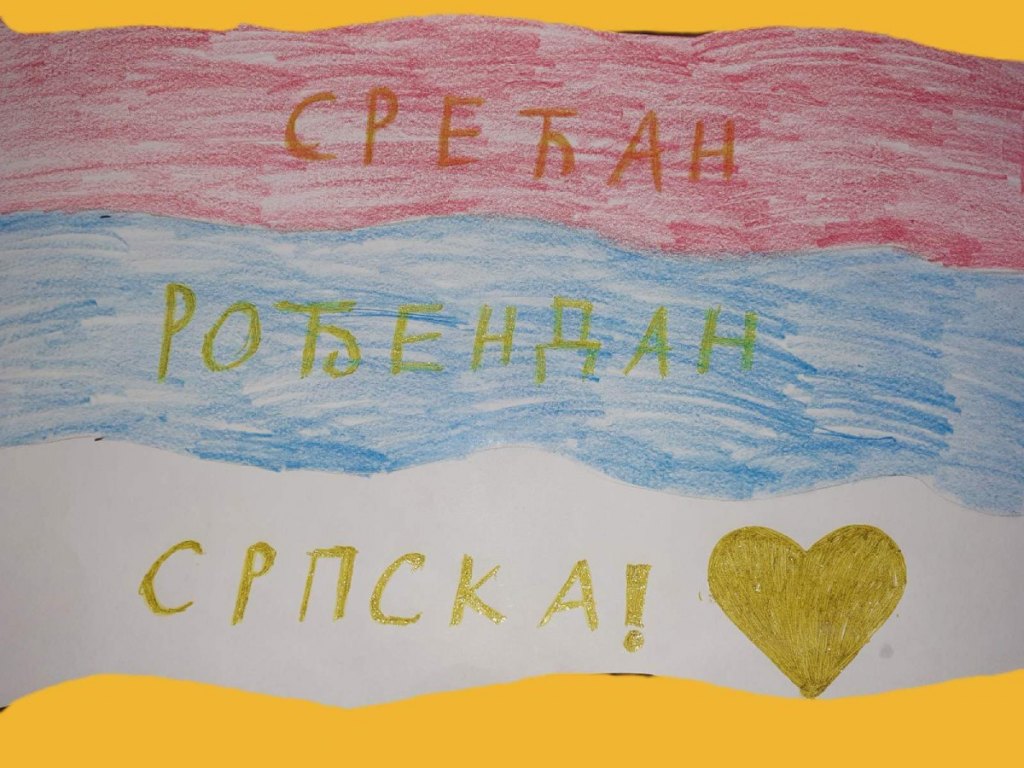 СРЕЋАН
РОЂЕНДАН
СРПСКА!